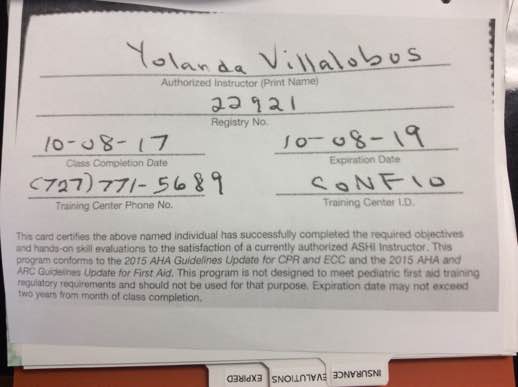 Yolanda Villalobos
Authorized Instructor (Print Name)
22921
Registry No.
10-08-17 10-08-19
Class Completion Date Expiration Date
(727) 771-5689 CONF10
Training Center Phone No. Training Center I.D.
This card certifies the above named individual has successfully completed the required objectives
and hands-on skill evaluations to the satisfaction of a currently authorized ASHI Instructor. This
program conforms to the 2015 AHA Guidelines Update for CPR and ECC and the 2015 AHA and
ARC Guidelines Update for First Aid. This program is not designed to meet pediatric first aid training
regulatory requirements and should not be used for that purpose. Expiration date may not exceed
two years from month of class completion.
INSURANCE
EVALUTIONS
EXPIRED